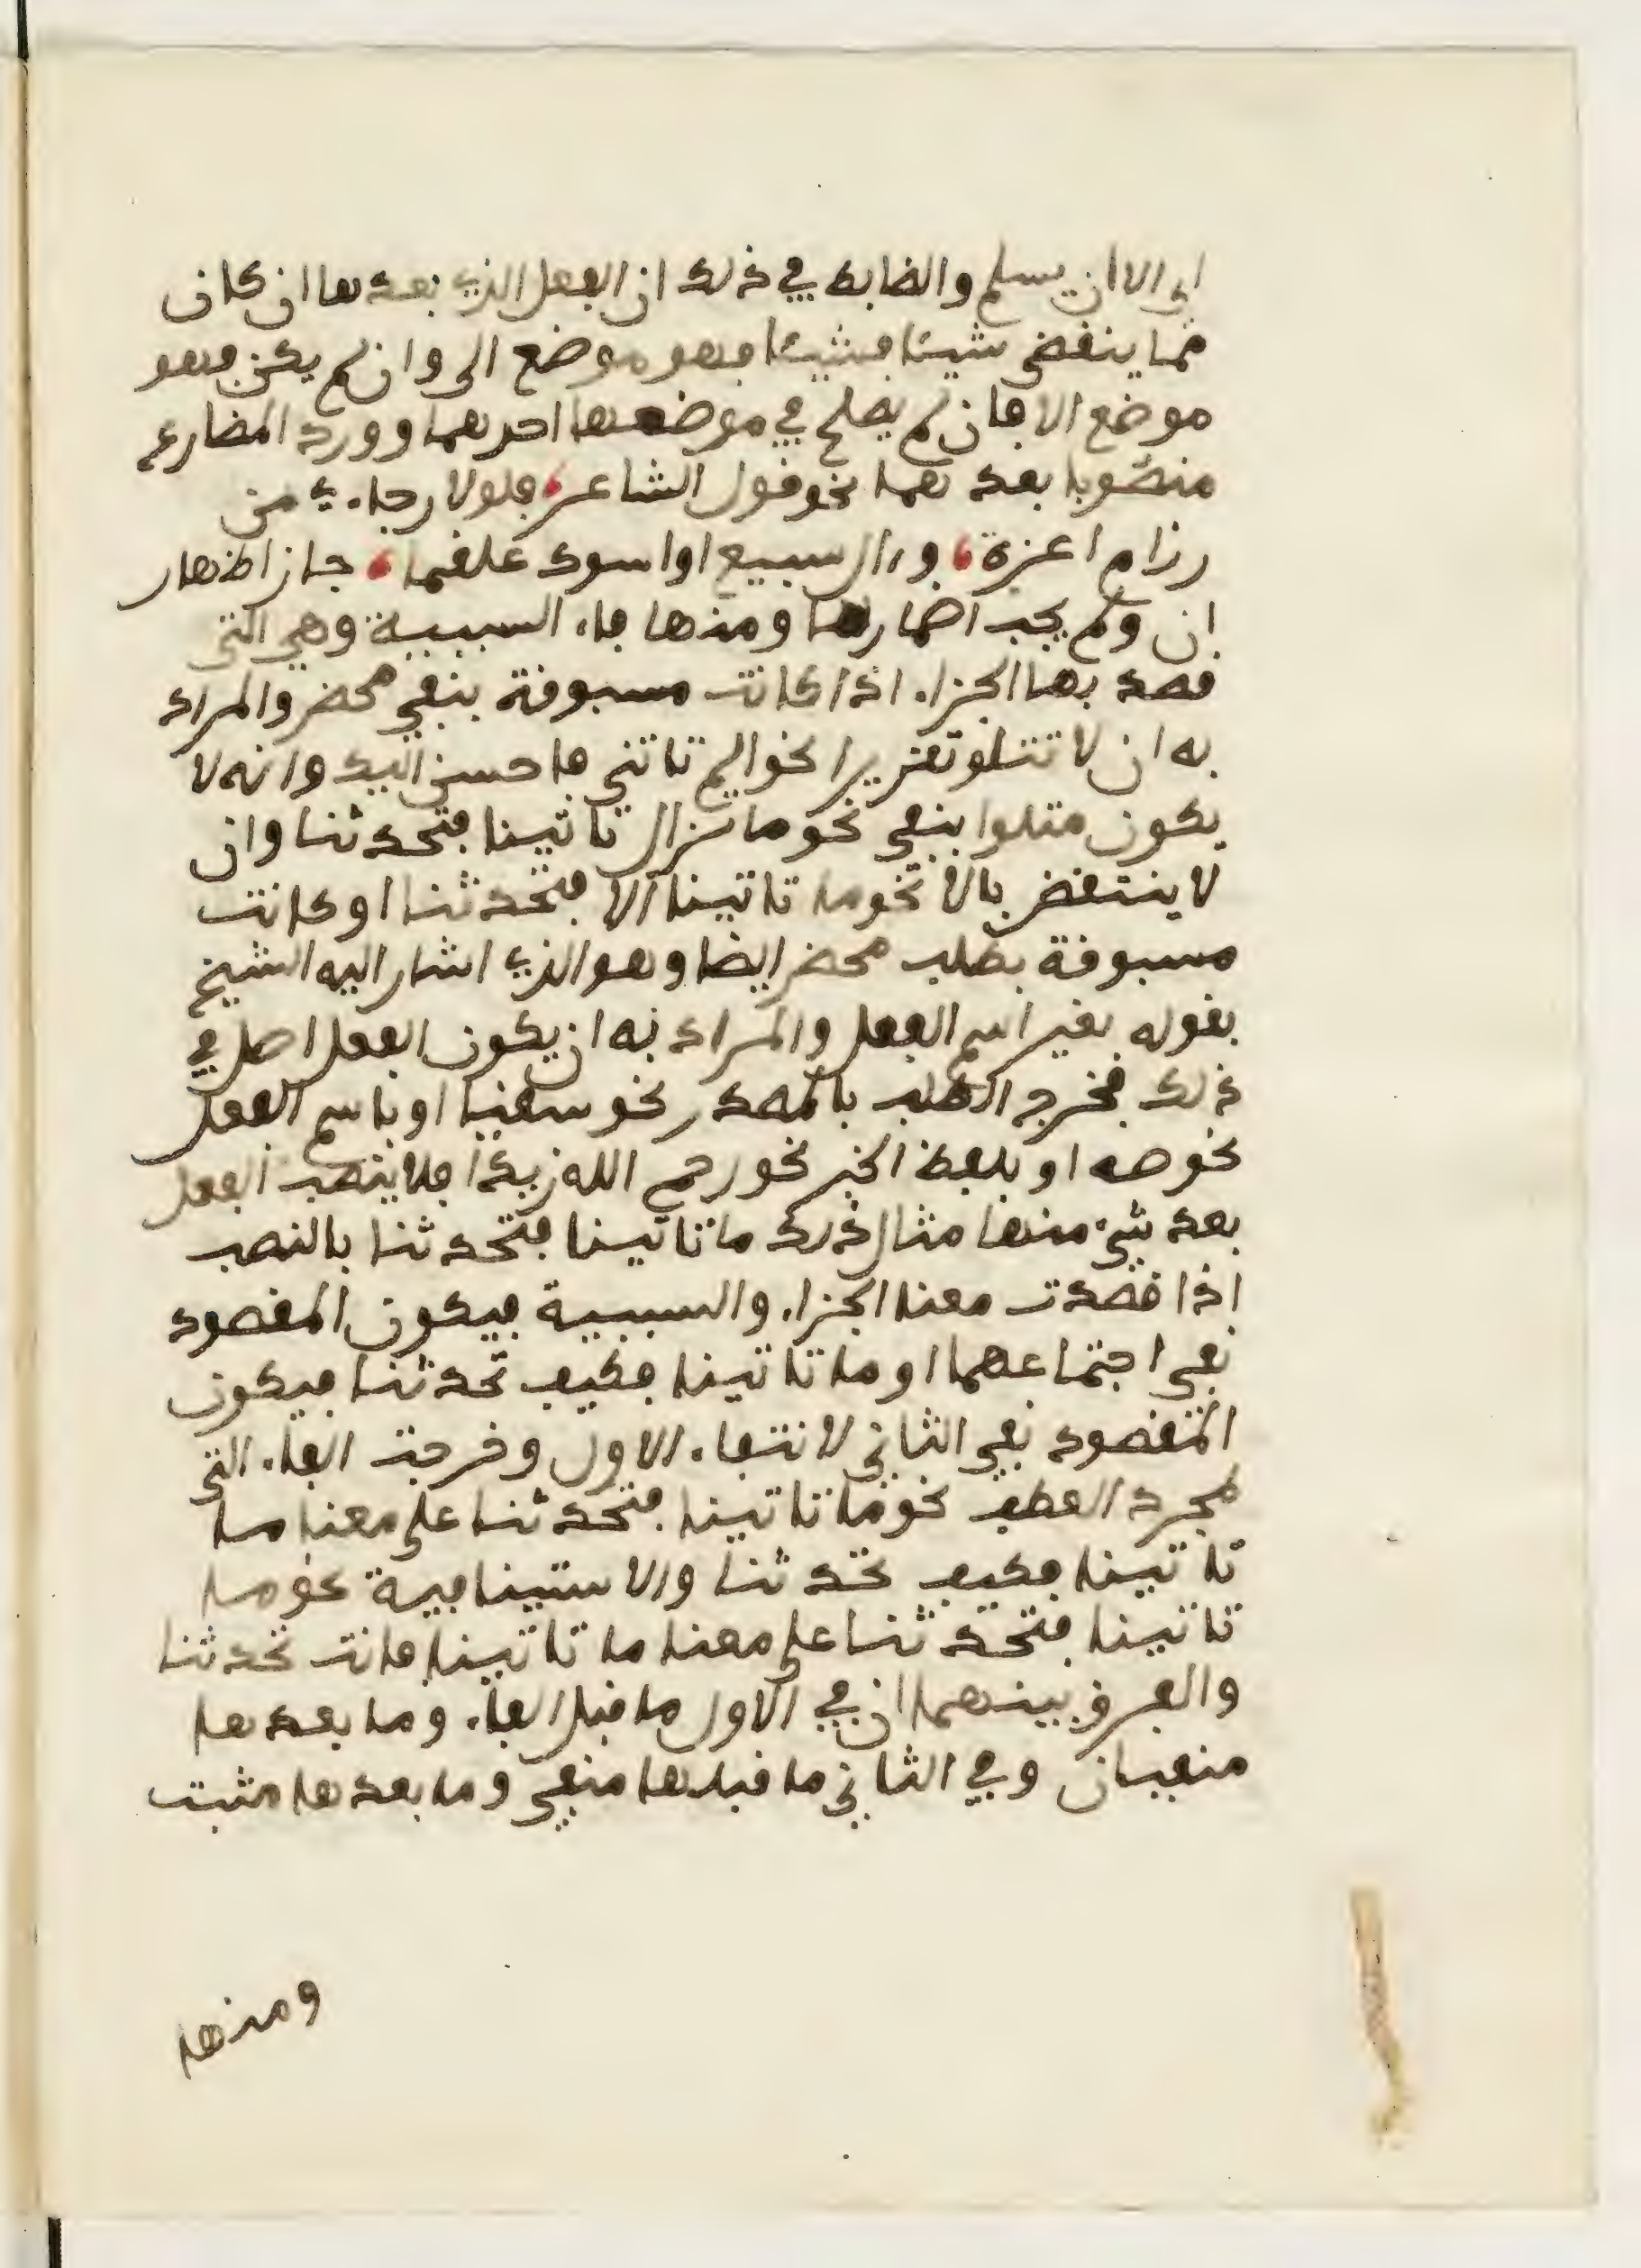 اي الا ان يسلم والضابط في ذلك ان الفعل الذي بعدها ان كان
مما ينقضي شيئا فشيئا فهو موضع الى وان لم يكن فهو
موضع الا فان لم يصلح في موضعها احدهما وورد المضارع
منصوبا بعدهما نحو قول الشاعر، فلولا رجاء ي من
رزام اعزة، وءال سبيع اواسوءك علقما، جاز اظهار
ان ولم يجب اضمارها ومنها فاء السببية وهي التي
قصد بها الجزاء اذا كانت مسبوقة بنفي محض والمراد
به ان لا تتلو تقريرا نحو الم تاتني فاحسن اليك وانه لا
يكون متلوا بنفي نحو ما تزال تاتينا فتحدثنا وان
لا ينتقض بالا نحو ما تاتينا الا فتحدثنا او كانت
مسبوقة بطلب محض ايضا وهو الذي اشار اليه الشيخ
بقوله بغير اسم الفعل والمراد به ان يكون الفعل اصل في
ذلك فخرج الطلب بالمصدر نحو سقيا او باسم الفعل
نحو صه او بلفظ الخبر نحو رحم الله زيدا فلا ينصب الفعل
بعد شيء منها مثال ذلك ما تاتينا فتحدثنا بالنصب
اذا قصدت معنا الجزاء والسببية فيكون المقصود
نفي اجتماعهما او ما تاتينا فكيف تحدثنا فيكون
المقصود نفي الثاني لانتفاء الاول وخرجت الفاء التي
لمجرد العطف نحو ما تاتينا فتحدثنا على معنا ما
تاتينا فكيف تحدثنا والاستينافية نحو ما
تاتينا فتحدثنا على معنا ما تاتينا فانت تحدثنا
والفرق بينهما ان في الاول ما قبل الفاء وما بعدها
منفيان وفي الثاني ما قبلها منفي وما بعدها مثبت
ومنها